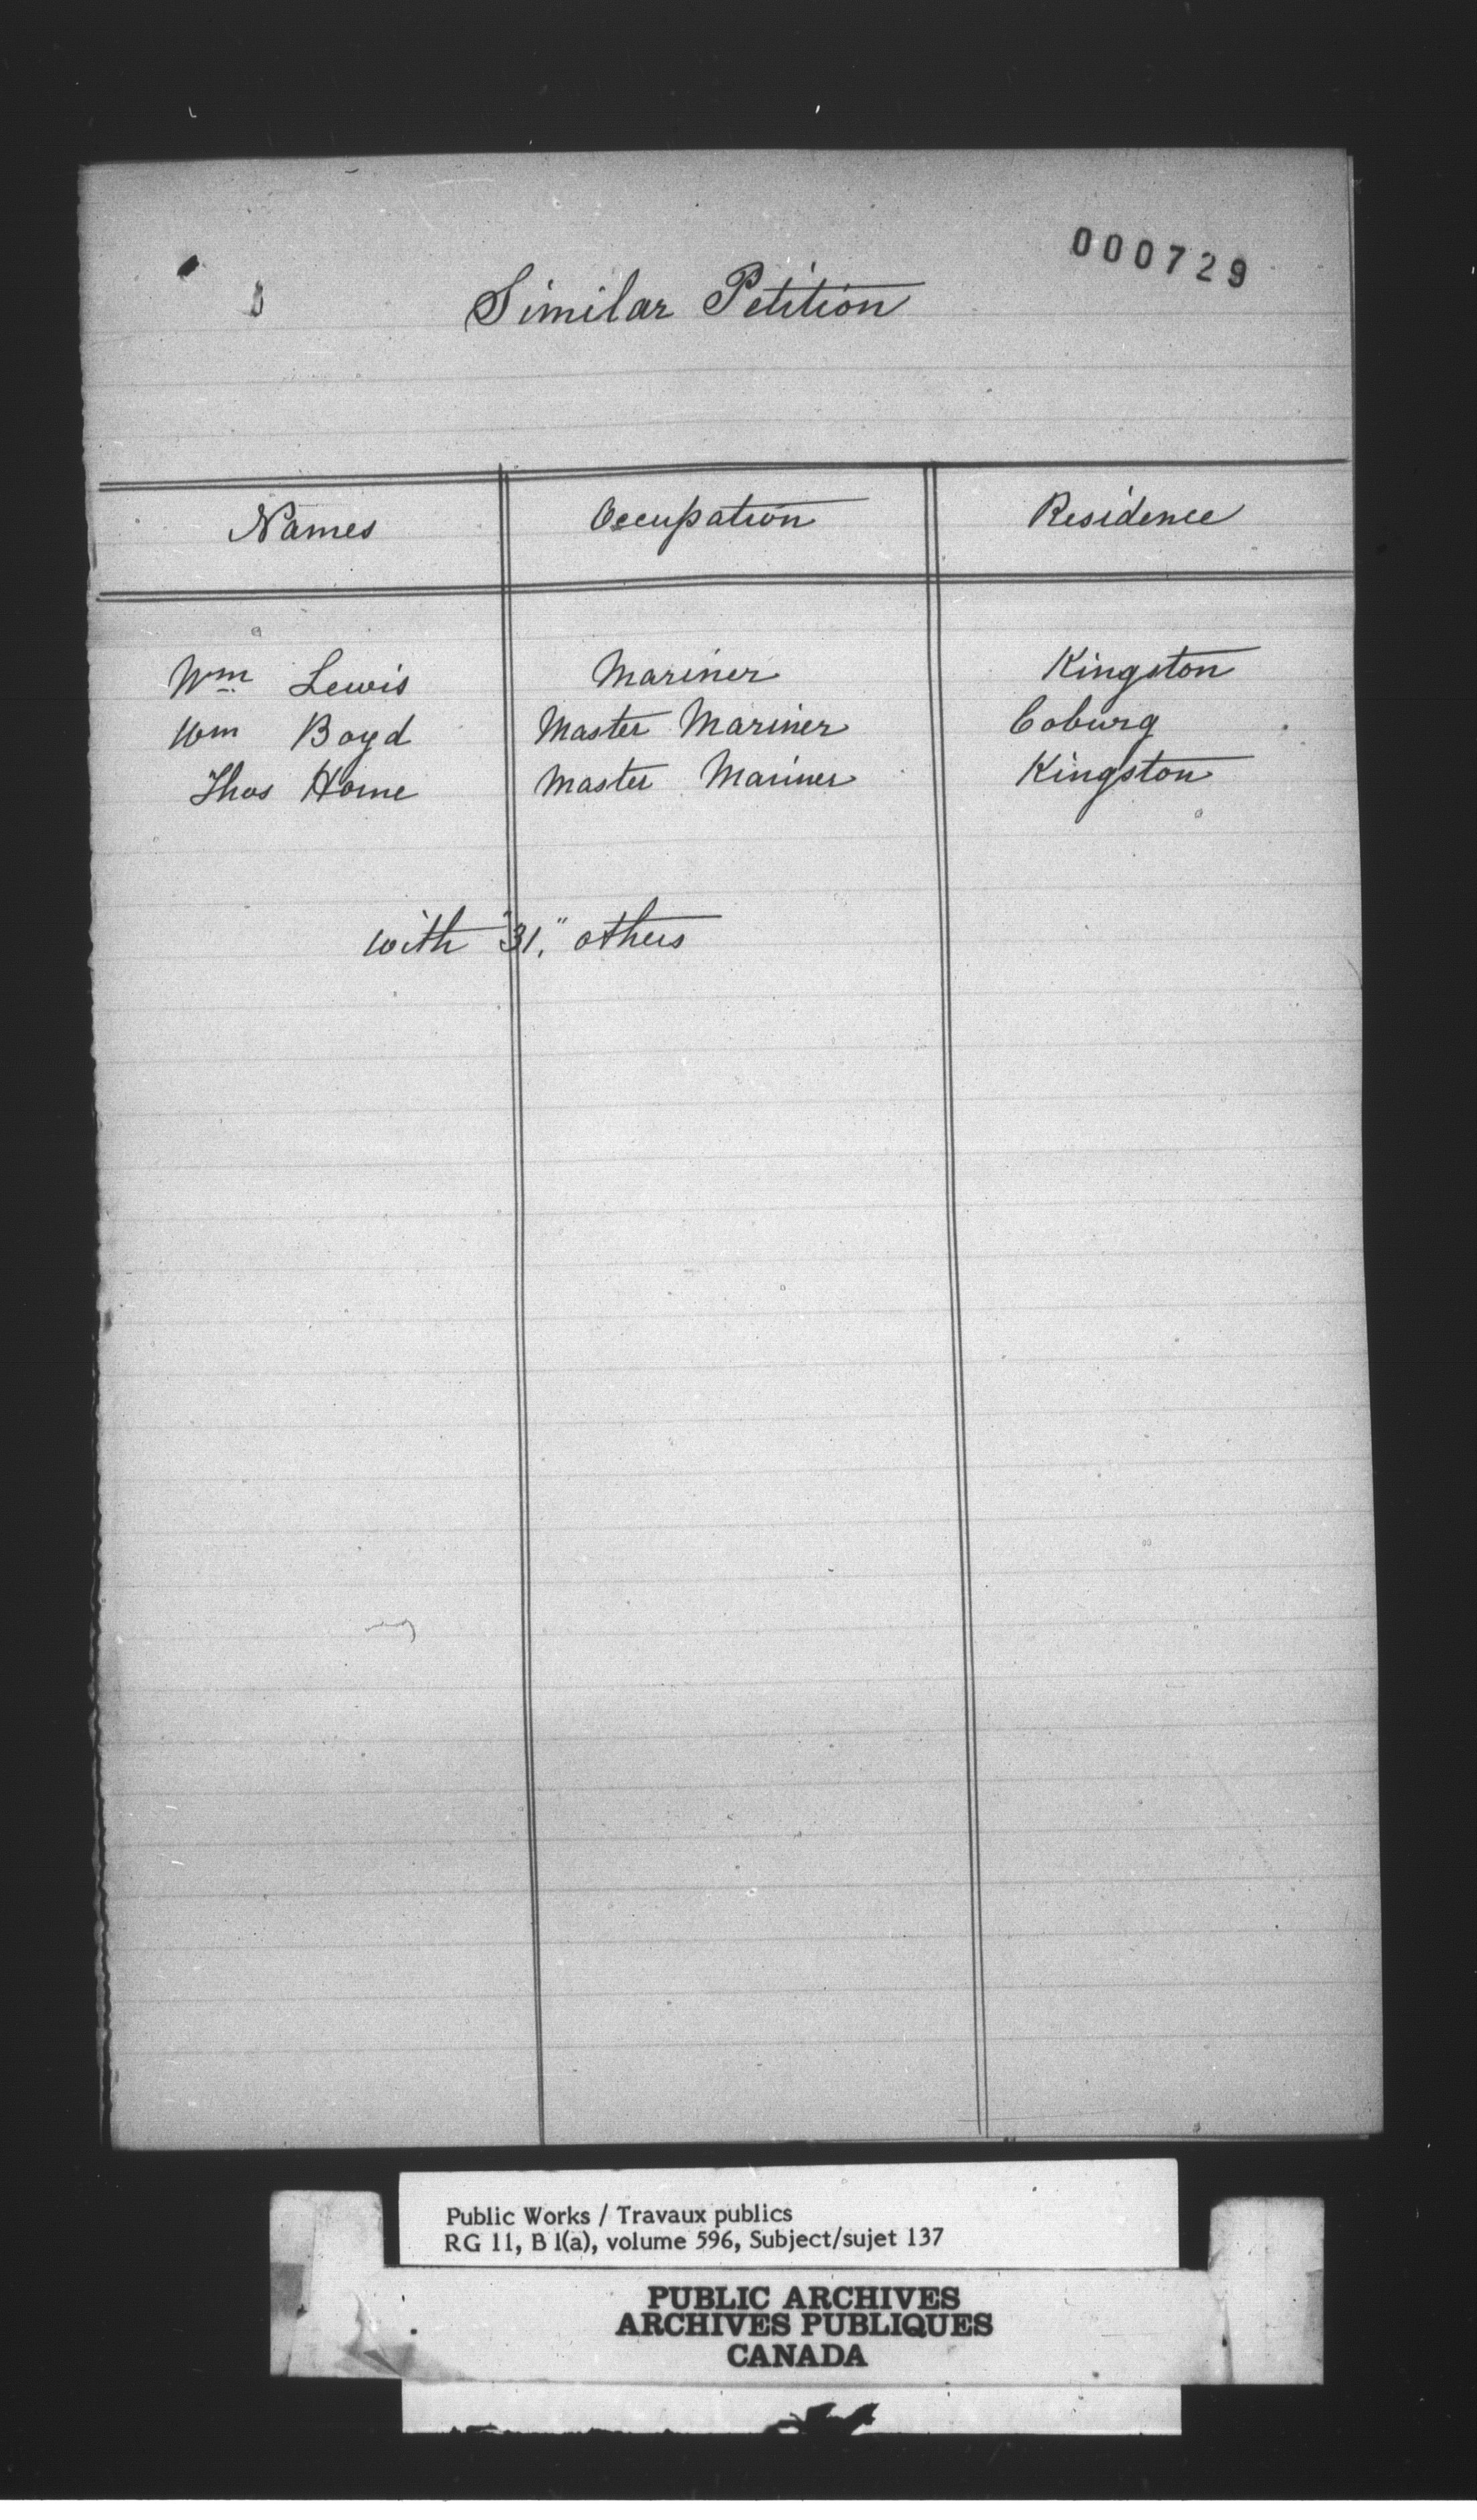 000729
Similar Petition
Names Occupation Residence
Wm Lewis Mariner Kingston
Wm Boyd Master Mariner Coburg
Thos Horne Master Mariner Kingston
with "31," others
Public Works / Travaux publics
RG 11, B 1(a), volume 596, Subject/sujet 137
PUBLIC ARCHIVES
ARCHIVES PUBLIQUES
CANADA